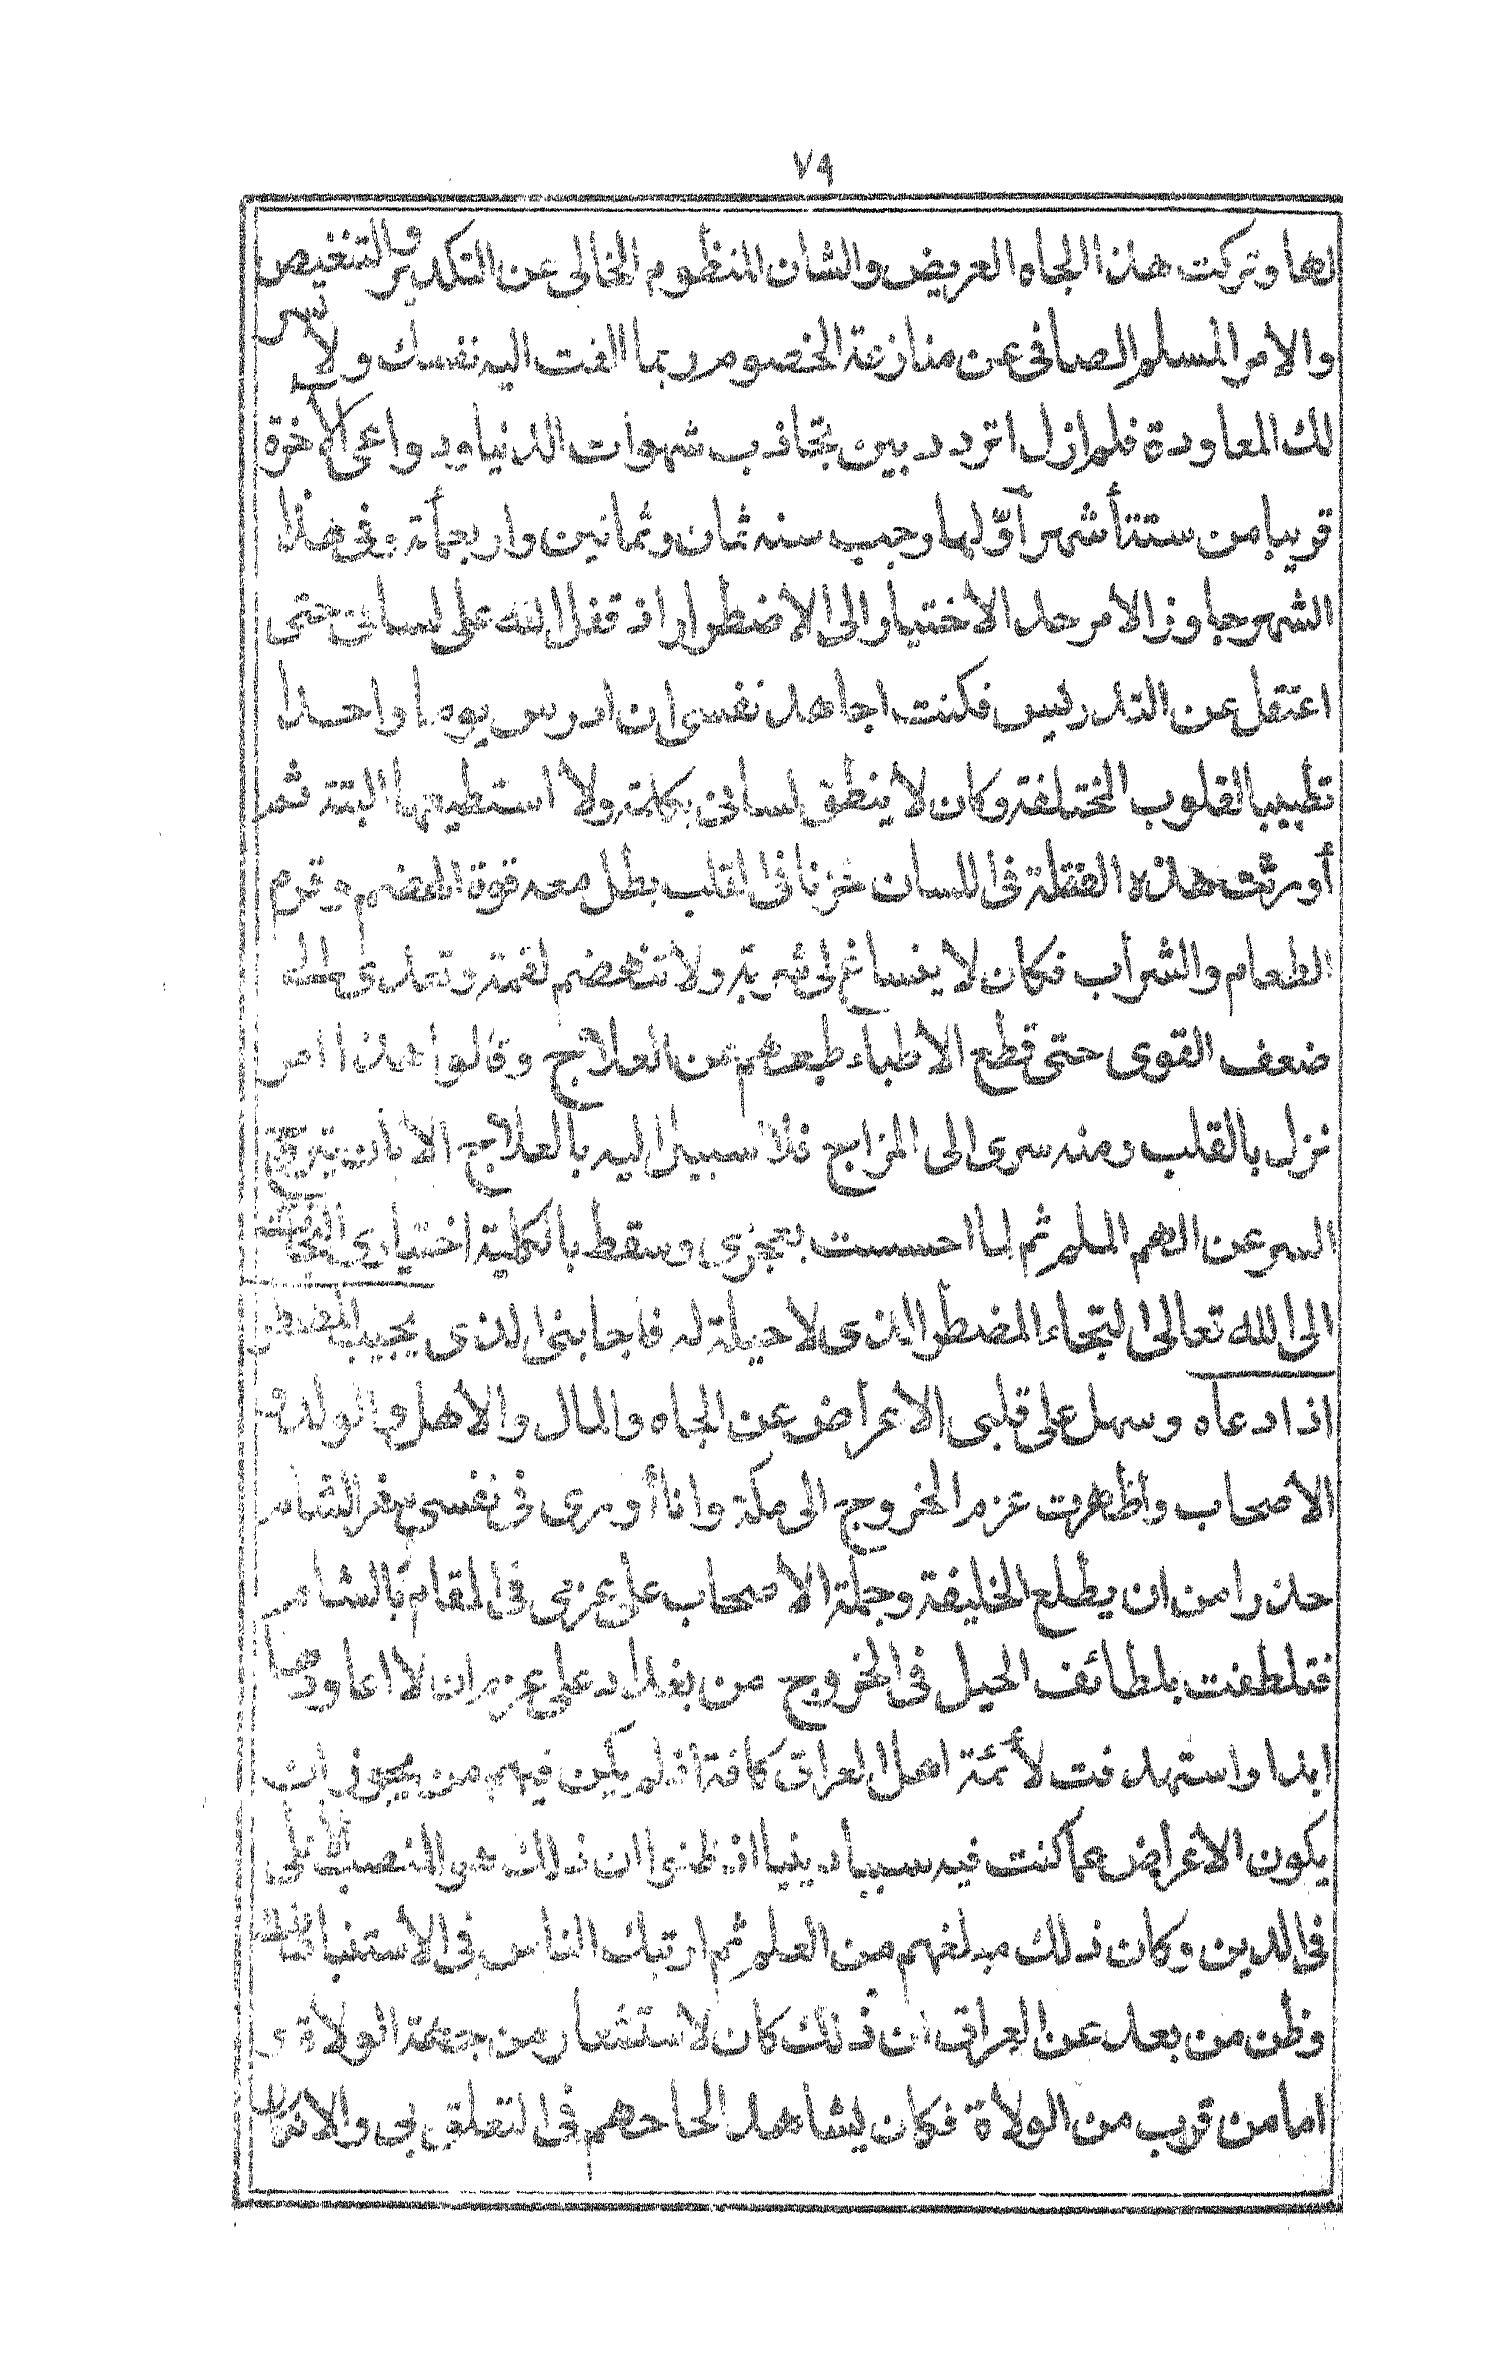 ٧٩
لها وتركت هذا الجاه العريض والشان المنظوم الخالى عن التكدير والتنغيص
والامر المسلم الصافى عن منازعة الخصوم ربما الفت اليه نفسك ولا يتيسر
لك المعاودة فلم ازل اتردد بين تجاذب شهوات الدنيا ودواعى الآخرة
قريبا من ستتأشهر أوّلها رجب سنه ثمان وثمانين واربعمأة وفى هذا
الشهر جاوز الامر حد الاختيار الى الاضطرار اذ قفل الله على لسانى حتى
اعتقل عن التدريس فكنت اجاهد نفسى ان ادرس يوما واحدا
تطييبا لقلوب المختلفة وكان لا ينطق لسانى بكلمة ولا استطيعها البتة ثم
أورثت هذه العقلة فى اللسان حزنا فى القلب بطل معه قوة الهضم وقرم
الطعام والشراب فكان لا ينساغ لى شربة ولا تنهضم لقمة وتعدى الى
ضعف القوى حتى قطع الاطباء طمعهم عن العلاج وقالوا هذا امر
نزل بالقلب ومنه سرى الى المزاج فلا سبيل اليه بالعلاج الا بان يتروح
السر عن الهم الملم ثم لما احسست بعجزى وسقط بالكلية اختيارى التجأت
الى الله تعالى التجاء المضطر الذى لا حيلة له فاجابنى الذى يجيب المضطر
اذا دعاه وسهل على قلبى الاعراض عن الجاه والمال والاهل والولد و
الاصحاب واظهرت عزم الخروج الى مكة وانا أورى فى نفسى سفر الشام
حذرا من ان يطلع الخليفة وجملة الاصحاب على عزمى فى المقام بالشام
فتلطفت بلطائف الحيل فى الخروج من بغداد على عزم ان لا اعاودها
ابدا واستهدفت لأئمة اهل العراق كافة اذ لم يكن فيهم من يجوز ان
يكون الاعراض عما كنت فيه سببا دينيا اذ ظنوا ان ذلك هو المنصب الاعلى
فى الدين وكان ذلك مبلغهم من العلم ثم ارتبك الناس فى الأستنباطات
وظن من بعد عن العراق ان ذلك كان لاستشعار من جهة الولاة و
اما من قرب من الولاة فكان يشاهد الحاحهم فى التعلق بى والانكباب